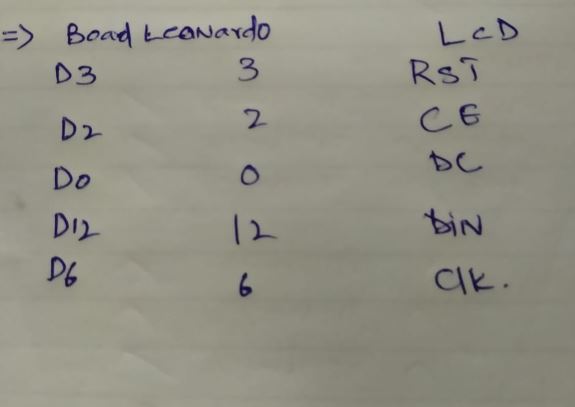 => Boad Leonardo LCD
D3 3 RST
D2 2 CE
D0 0 DC
D12 12 DIN
D6 6 Clk.